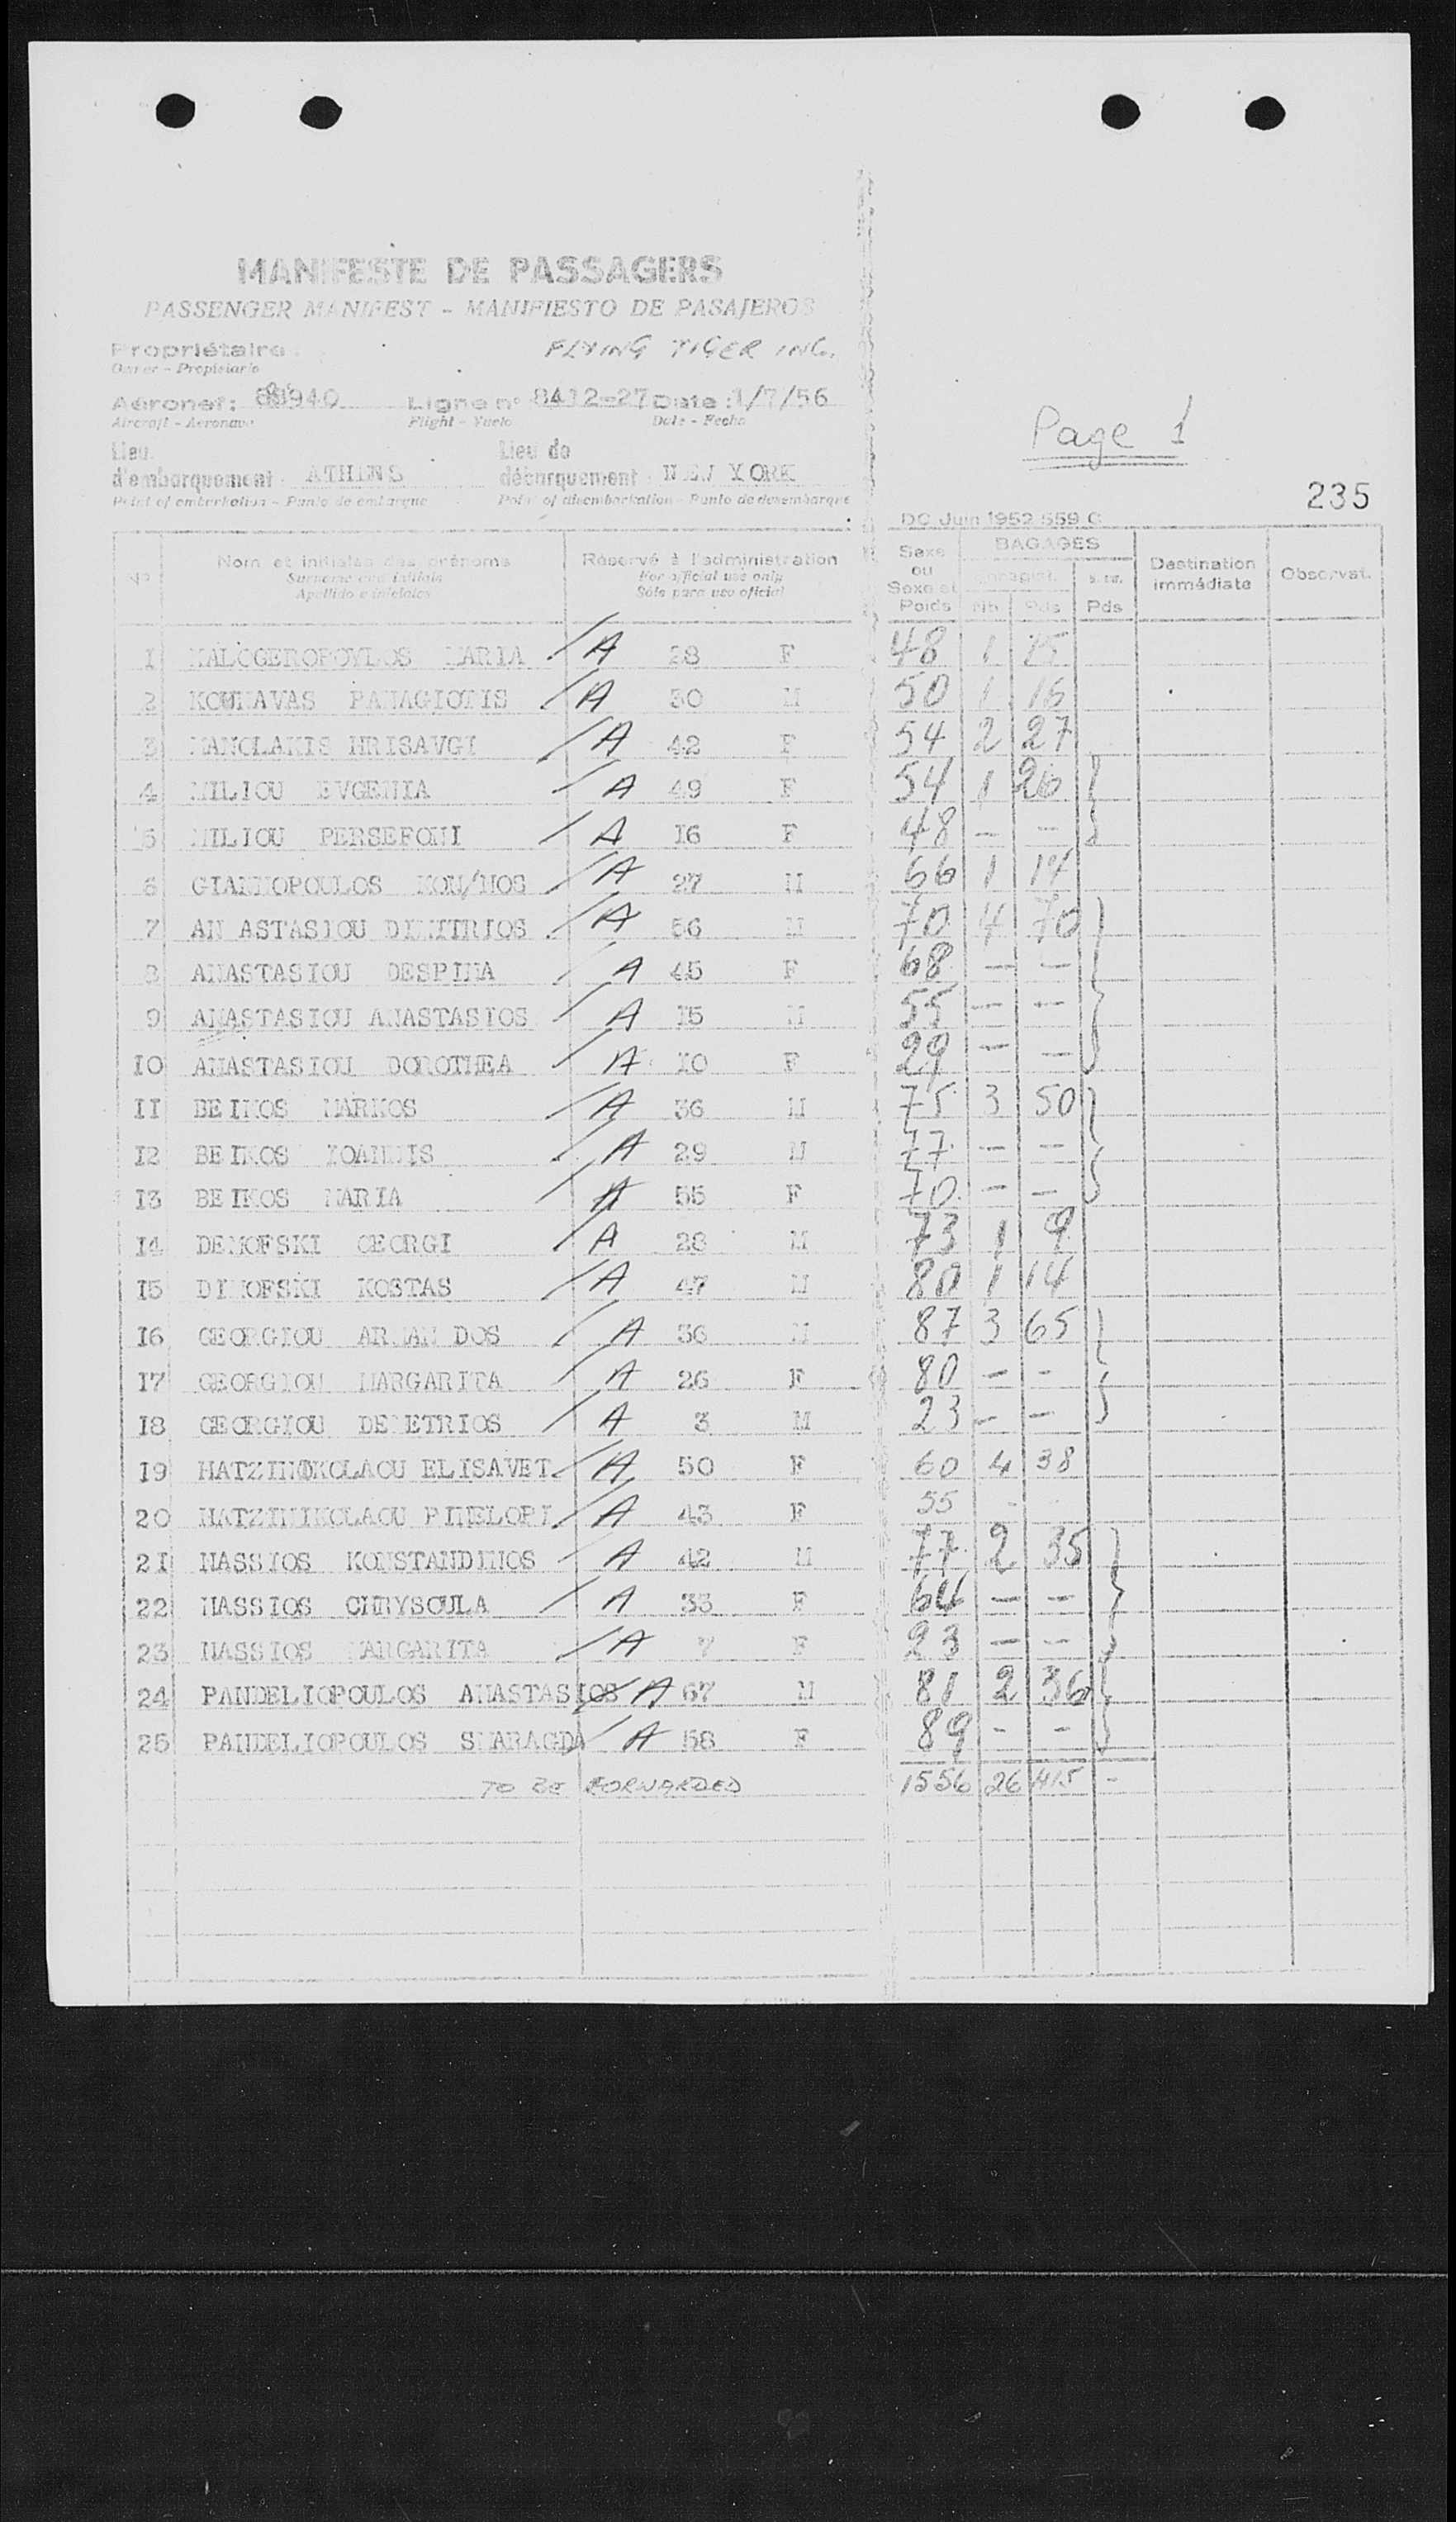 MANIFESTE DE PASSAGERS
PASSENGER MANIFEST - MANIFIESTO DE PASAJEROS
Propriétaire : FLYING TIGER INC.
Owner - Propietario
Aéronef : 88940 Ligne n° 8412-27 Date : 1/7/56
Aircraft - Aeronave Flight - Vuelo Date - Fecha
Page 1
Lieu Lieu de
d'embarquement : ATHINS débarquement : NEW YORK
Point of embarkation - Punto de embarque Point of disembarkation - Punto de desembarque
235
DC Juin 1952 559 C
Nº Nom et initiales des prénoms Réservé à l'administration Sexe ou Sexe et Poids BAGAGES Destination immédiate Observat.
Surname and initials For official use only
Apellido e iniciales Sólo para uso oficial Nb Pds Pds
1 KALOGEROPOYLOS MARIA / A 28 F 48 1 15
2 KOUNAVAS PANAGIOTIS / A 30 M 50 1 16
3 MANOLAKIS HRISAVGI / A 42 F 54 2 27
4 MILIOU EVGENIA / A 49 F 54 1 26
5 MILIOU PERSEFONI / A 16 F 48 - -
6 GIANNOPOULOS KON/NOS / A 27 M 66 1 14
7 AN ASTASIOU DIMITRIOS / A 56 M 70 4 70
8 ANASTASIOU DESPINA / A 45 F 68 - -
9 ANASTASIOU ANASTASIOS / A 15 M 55 - -
10 ANASTASIOU DOROTHEA / A 10 F 29 - -
11 BEIKOS MARKOS / A 36 M 75 3 50
12 BEIKOS IOANNIS / A 29 M 77 - -
13 BEIKOS MARIA / A 55 F 70 - -
14 DEMOFSKI GEORGI / A 28 M 73 1 9
15 DIMOFSKI KOSTAS / A 47 M 80 1 14
16 GEORGIOU ARMAN DOS / A 36 M 87 3 65
17 GEORGIOU MARGARITA / A 26 F 80 - -
18 GEORGIOU DEMETRIOS / A 3 M 23 - -
19 HATZINIKOLAOU ELISAVET / A 50 F 60 4 38
20 HATZINIKOLAOU PINELOPI / A 43 F 55 - -
21 NASSIOS KONSTANDINOS / A 42 M 77 2 35
22 NASSIOS CHRYSOULA / A 33 F 64 - -
23 NASSIOS MARGARITA / A 7 F 23 - -
24 PANDELIOPOULOS ANASTASIOS / A 67 M 81 2 36
25 PANDELIOPOULOS SMARAGDA / A 58 F 89 - -
TO BE FORWARDED 1556 26 415 -